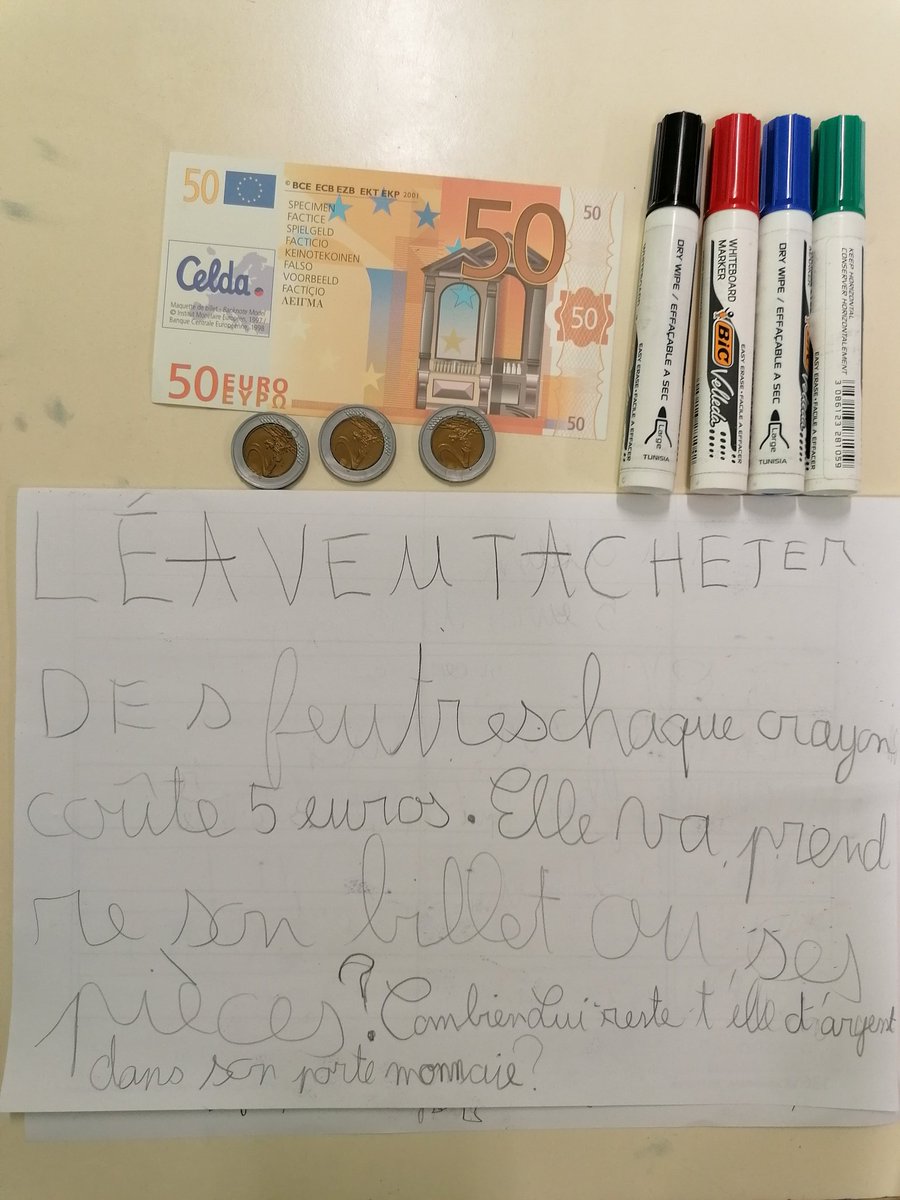 50
© BCE ECB EZB EKT EKP 2001
SPECIMEN
FACTICE
SPIELGELD
FACTICIO
KEINOTEKOINEN
FALSO
VOORBEELD
FACTIÇIO
ΔΕΙΓΜΑ
50
50
50
50
Celda
Maquette de billet - Banknote Model
© Institut Monétaire Européen, 1997 /
Banque Centrale Européenne, 1998
50 EURO
ΕΥΡΩ
DRY WIPE / EFFAÇABLE A SEC
Large
TUNISIA
WHITEBOARD
MARKER
BiC
Velleda
EASY ERASE • FACILE A EFFACER
DRY WIPE / EFFAÇABLE A SEC
Large
TUNISIA
EASY ERASE • FACILE A EFFACER
KEEP HORIZONTAL
CONSERVER HORIZONTALEMENT
3 086123 281059
LÉA VEUT ACHETER
DES feutres chaque crayon
coûte 5 euros. Elle va prend
re son billet ou ses
pièces? Combien Lui reste t'elle d'argent
dans son porte monnaie?